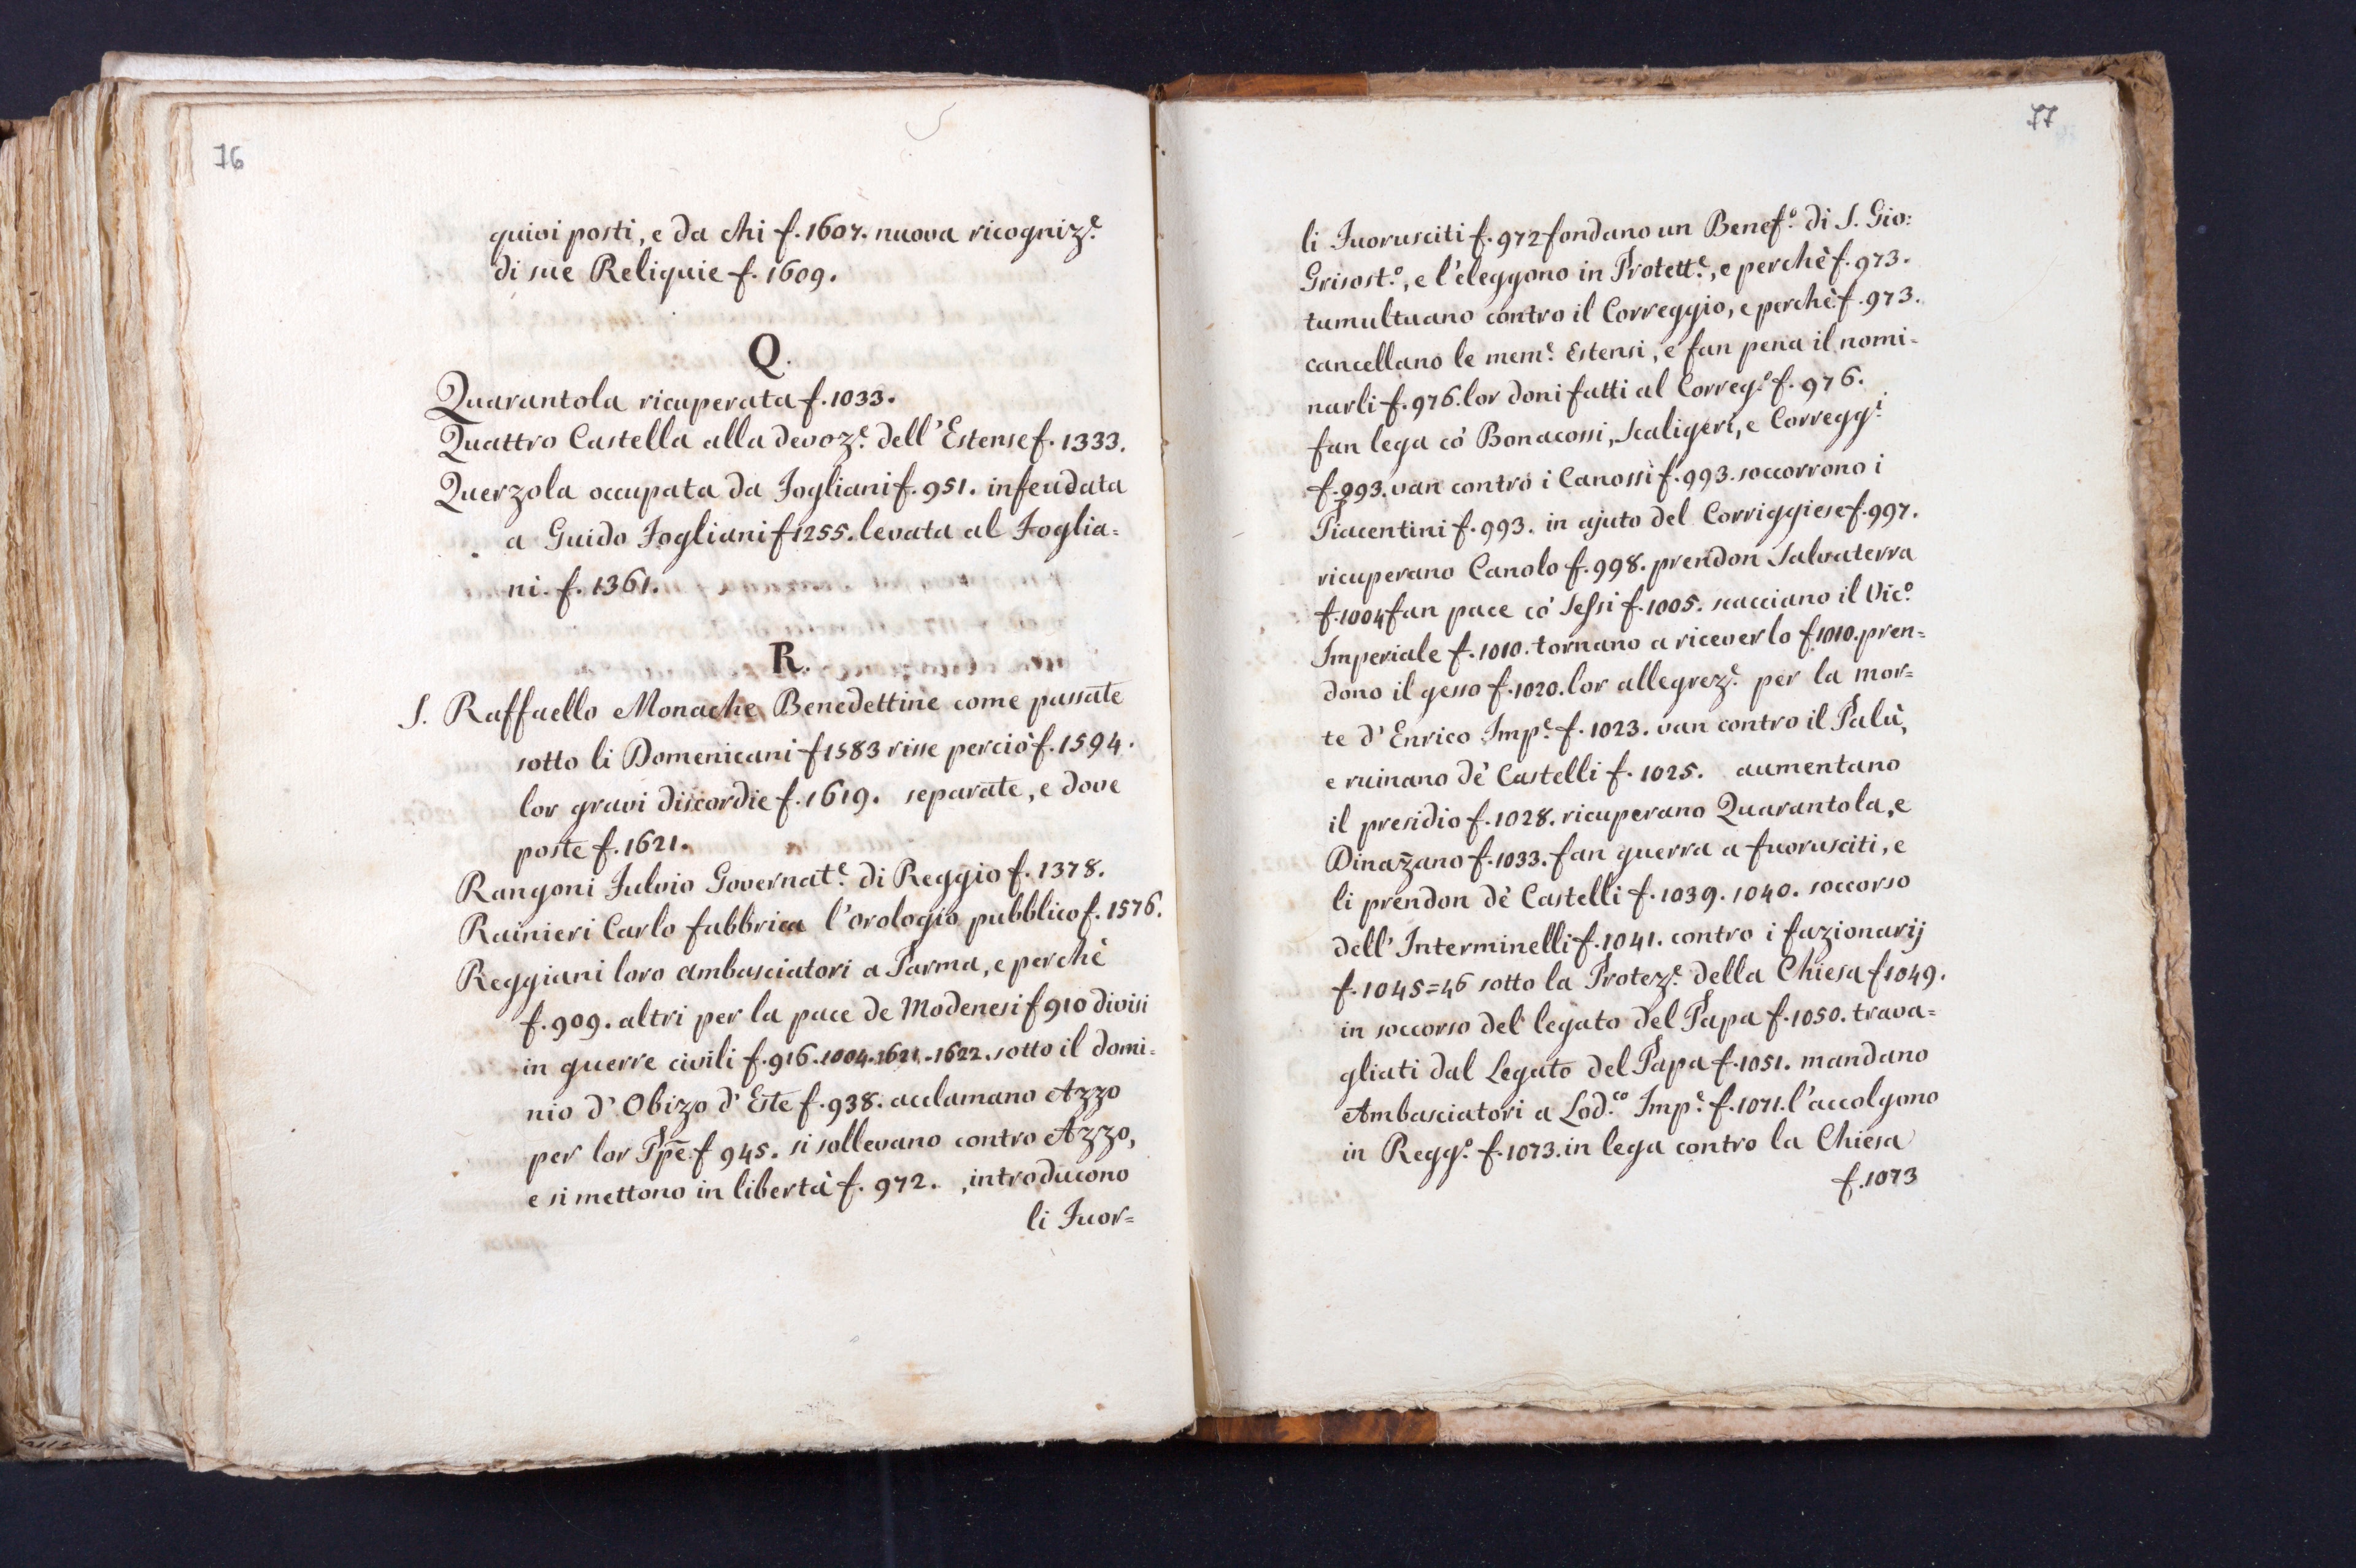 76
quivi posti, e da chi f. 1607. nuova ricogniz.e
di sue Reliquie f. 1609.
Q.
Quarantola ricuperata f. 1033.
Quattro Castella alla devoz.e dell'Estense f. 1333.
Querzola occupata da Fogliani f. 951. infeudata
a Guido Fogliani f 1255. levata al Foglia=
ni. f. 1361.
R.
S. Raffaello Monache Benedettine come passate
sotto li Domenicani f 1583 risse perciò f. 1594.
lor gravi discordie f. 1619. separate, e dove
poste f. 1621.
Rangoni Fulvio Governat.e di Reggio f. 1378.
Rainieri Carlo fabbrica l'orologio pubblico f. 1576.
Reggiani loro ambasciatori a Parma, e perchè
f. 909. altri per la pace de Modenesi f 910 divisi
in guerre civili f. 916. 1004. 1621. 1622. sotto il domi=
nio d'Obizo d'Este f. 938. acclamano Azzo
per lor Ppe f 945. si sollevano contro Azzo,
e si mettono in libertà f. 972. , introducono
li Fuor=
77
li Fuorusciti f. 972 fondano un Benef.o di S. Gio:
Grisost.o, e l'eleggono in Protett.e, e perchè f. 973.
tumultuano contro il Correggio, e perchè f. 973.
cancellano le mem.e Estensi, e fan pena il nomi=
narli f. 976. lor doni fatti al Correg.o f. 976.
fan lega co' Bonacossi, Scaligeri, e Corregg.i
f. 993. van contro i Canossi f. 993. soccorrono i
Piacentini f. 993. in ajuto del Corriggiese f. 997.
ricuperano Canolo f. 998. prendon Salvaterra
f. 1004 fan pace co' Sessi f. 1005. scacciano il Vic.o
Imperiale f. 1010. tornano a riceverlo f. 1010. pren=
dono il gesso f. 1020. lor allegrez.e per la mor=
te d'Enrico Imp.e f. 1023. van contro il Palù,
e ruinano de' Castelli f. 1025. aumentano
il presidio f. 1028. ricuperano Quarantola, e
Dinazzano f. 1033. fan guerra a fuorusciti, e
li prendon de' Castelli f. 1039. 1040. soccorso
dell'Interminelli f. 1041. contro i fazionarij
f. 1045=46 sotto la Protez.e della Chiesa f 1049.
in soccorso del legato del Papa f. 1050. trava=
gliati dal Legato del Papa f. 1051. mandano
Ambasciatori a Lod.co Imp.e f. 1071. l'accolgono
in Regg.o f. 1073. in lega contro la Chiesa
f. 1073